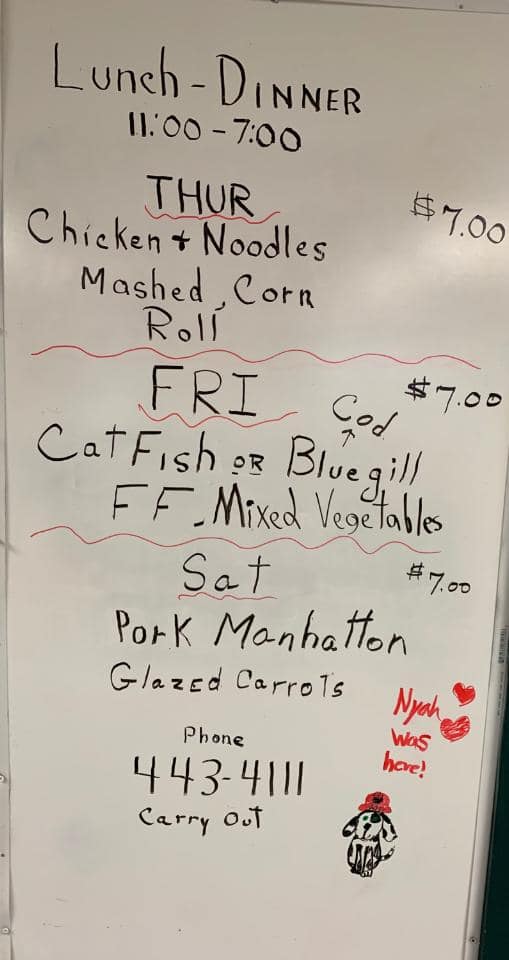 Lunch - DINNER
11:00 - 7:00
THUR
$7.00
Chicken + Noodles
Mashed, Corn
Roll
FRI
$7.00
Cod
CatFish OR Bluegill
FF. Mixed Vegetables
Sat
$7.00
Pork Manhatton
Glazed Carrots
Nyah
was
here!
Phone
443-4111
Carry Out